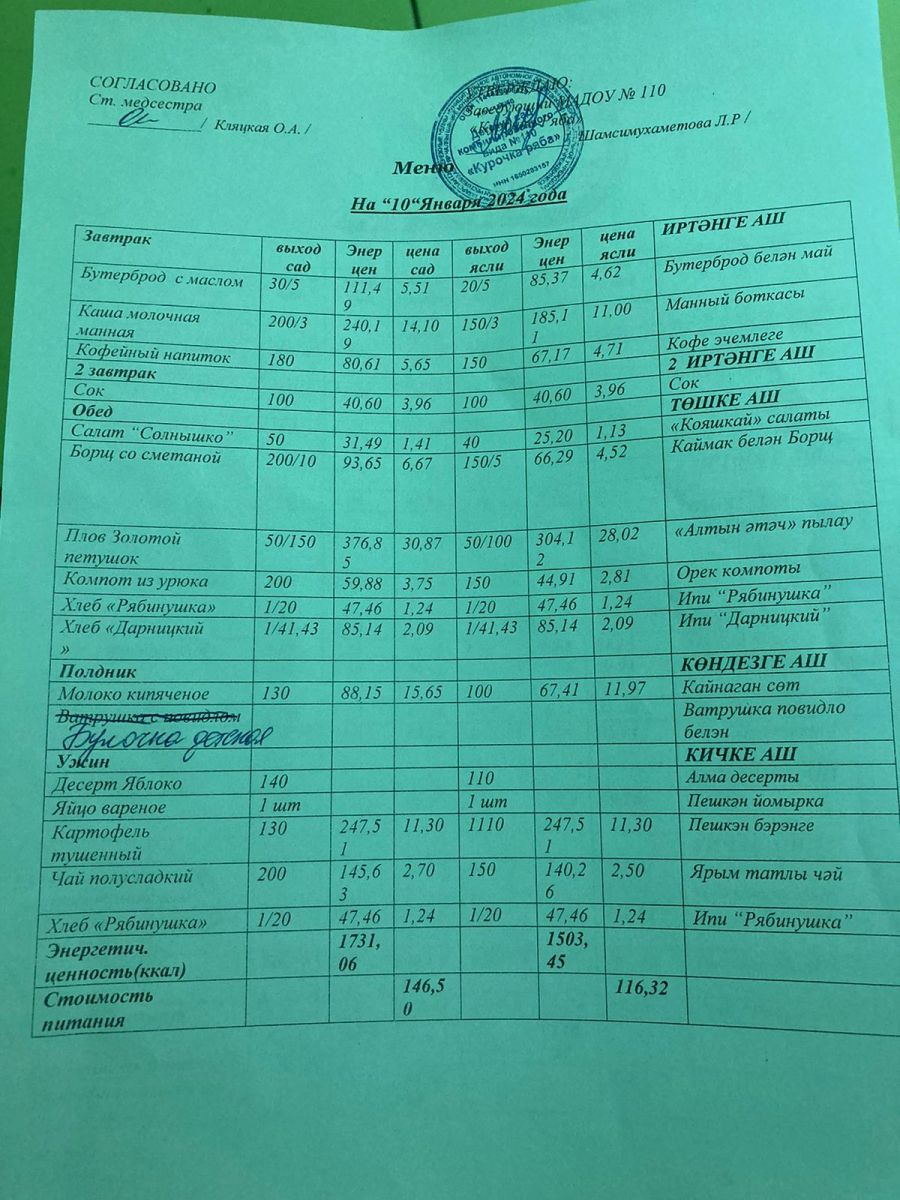 СОГЛАСОВАНО
Ст. медсестра
/ Кляцкая О.А. /
Заведующий МАДОУ № 110
«Курочка ряба»
Шамсимухаметова Л.Р /
вида № 110
«Курочка ряба»
ИНН 1650293157
Меню
На “10“Января 2024 года
Завтрак выход сад Энер цен цена сад выход ясли Энер цен цена ясли ИРТӘНГЕ АШ
Бутерброд с маслом 30/5 111,49 5,51 20/5 85,37 4,62 Бутерброд белән май
Каша молочная манная 200/3 240,19 14,10 150/3 185,11 11,00 Манный боткасы
Кофейный напиток 180 80,61 5,65 150 67,17 4,71 Кофе эчемлеге
2 завтрак 2 ИРТӘНГЕ АШ
Сок 100 40,60 3,96 100 40,60 3,96 Сок
Обед ТӨШКЕ АШ
Салат “Солнышко” 50 31,49 1,41 40 25,20 1,13 «Кояшкай» салаты
Борщ со сметаной 200/10 93,65 6,67 150/5 66,29 4,52 Каймак белән Борщ
Плов Золотой петушок 50/150 376,85 30,87 50/100 304,12 28,02 «Алтын әтәч» пылау
Компот из урюка 200 59,88 3,75 150 44,91 2,81 Орек компоты
Хлеб «Рябинушка» 1/20 47,46 1,24 1/20 47,46 1,24 Ипи “Рябинушка”
Хлеб «Дарницкий» 1/41,43 85,14 2,09 1/41,43 85,14 2,09 Ипи “Дарницкий”
Полдник КӨНДЕЗГЕ АШ
Молоко кипяченое 130 88,15 15,65 100 67,41 11,97 Кайнаган сөт
Ватрушка с повидлом Ватрушка повидло белэн
Булочка детская
Ужин КИЧКЕ АШ
Десерт Яблоко 140 110 Алма десерты
Яйцо вареное 1 шт 1 шт Пешкән йомырка
Картофель тушенный 130 247,51 11,30 1110 247,51 11,30 Пешкэн бэрэнге
Чай полусладкий 200 145,63 2,70 150 140,26 2,50 Ярым татлы чәй
Хлеб «Рябинушка» 1/20 47,46 1,24 1/20 47,46 1,24 Ипи “Рябинушка”
Энергетич. ценность(ккал) 1731,06 1503,45
Стоимость питания 146,50 116,32